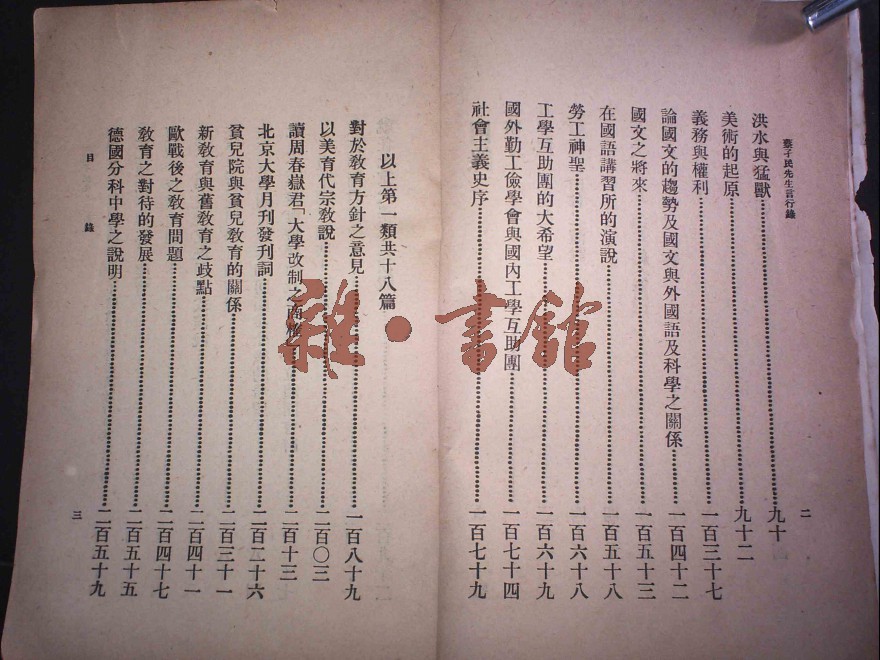 蔡孑民先生言行錄
二
洪水與猛獸……九十
美術的起原……九十二
義務與權利……一百三十七
論國文的趨勢及國文與外國語及科學之關係……一百四十二
國文之將來……一百五十三
在國語講習所的演說……一百五十八
勞工神聖……一百六十八
工學互助團的大希望……一百六十九
國外勤工儉學會與國內工學互助團……一百七十四
社會主義史序……一百七十九
以上第一類共十八篇
對於敎育方針之意見……一百八十九
以美育代宗敎說……二百〇三
讀周春嶽君「大學改制之商榷」……二百十三
北京大學月刊發刊詞……二百二十六
貧兒院與貧兒敎育的關係……二百三十一
新敎育與舊敎育之歧點……二百四十一
歐戰後之敎育問題……二百四十七
敎育之對待的發展……二百五十五
德國分科中學之說明……二百五十九
目錄
三
雜·書館